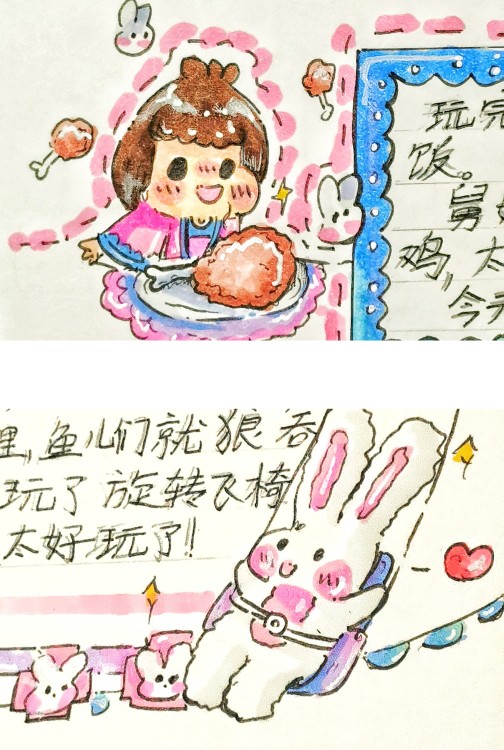 玩完
饭。
舅
鸡,太
今天
里,鱼儿们就狼吞
玩了旋转飞椅
太好玩了!!